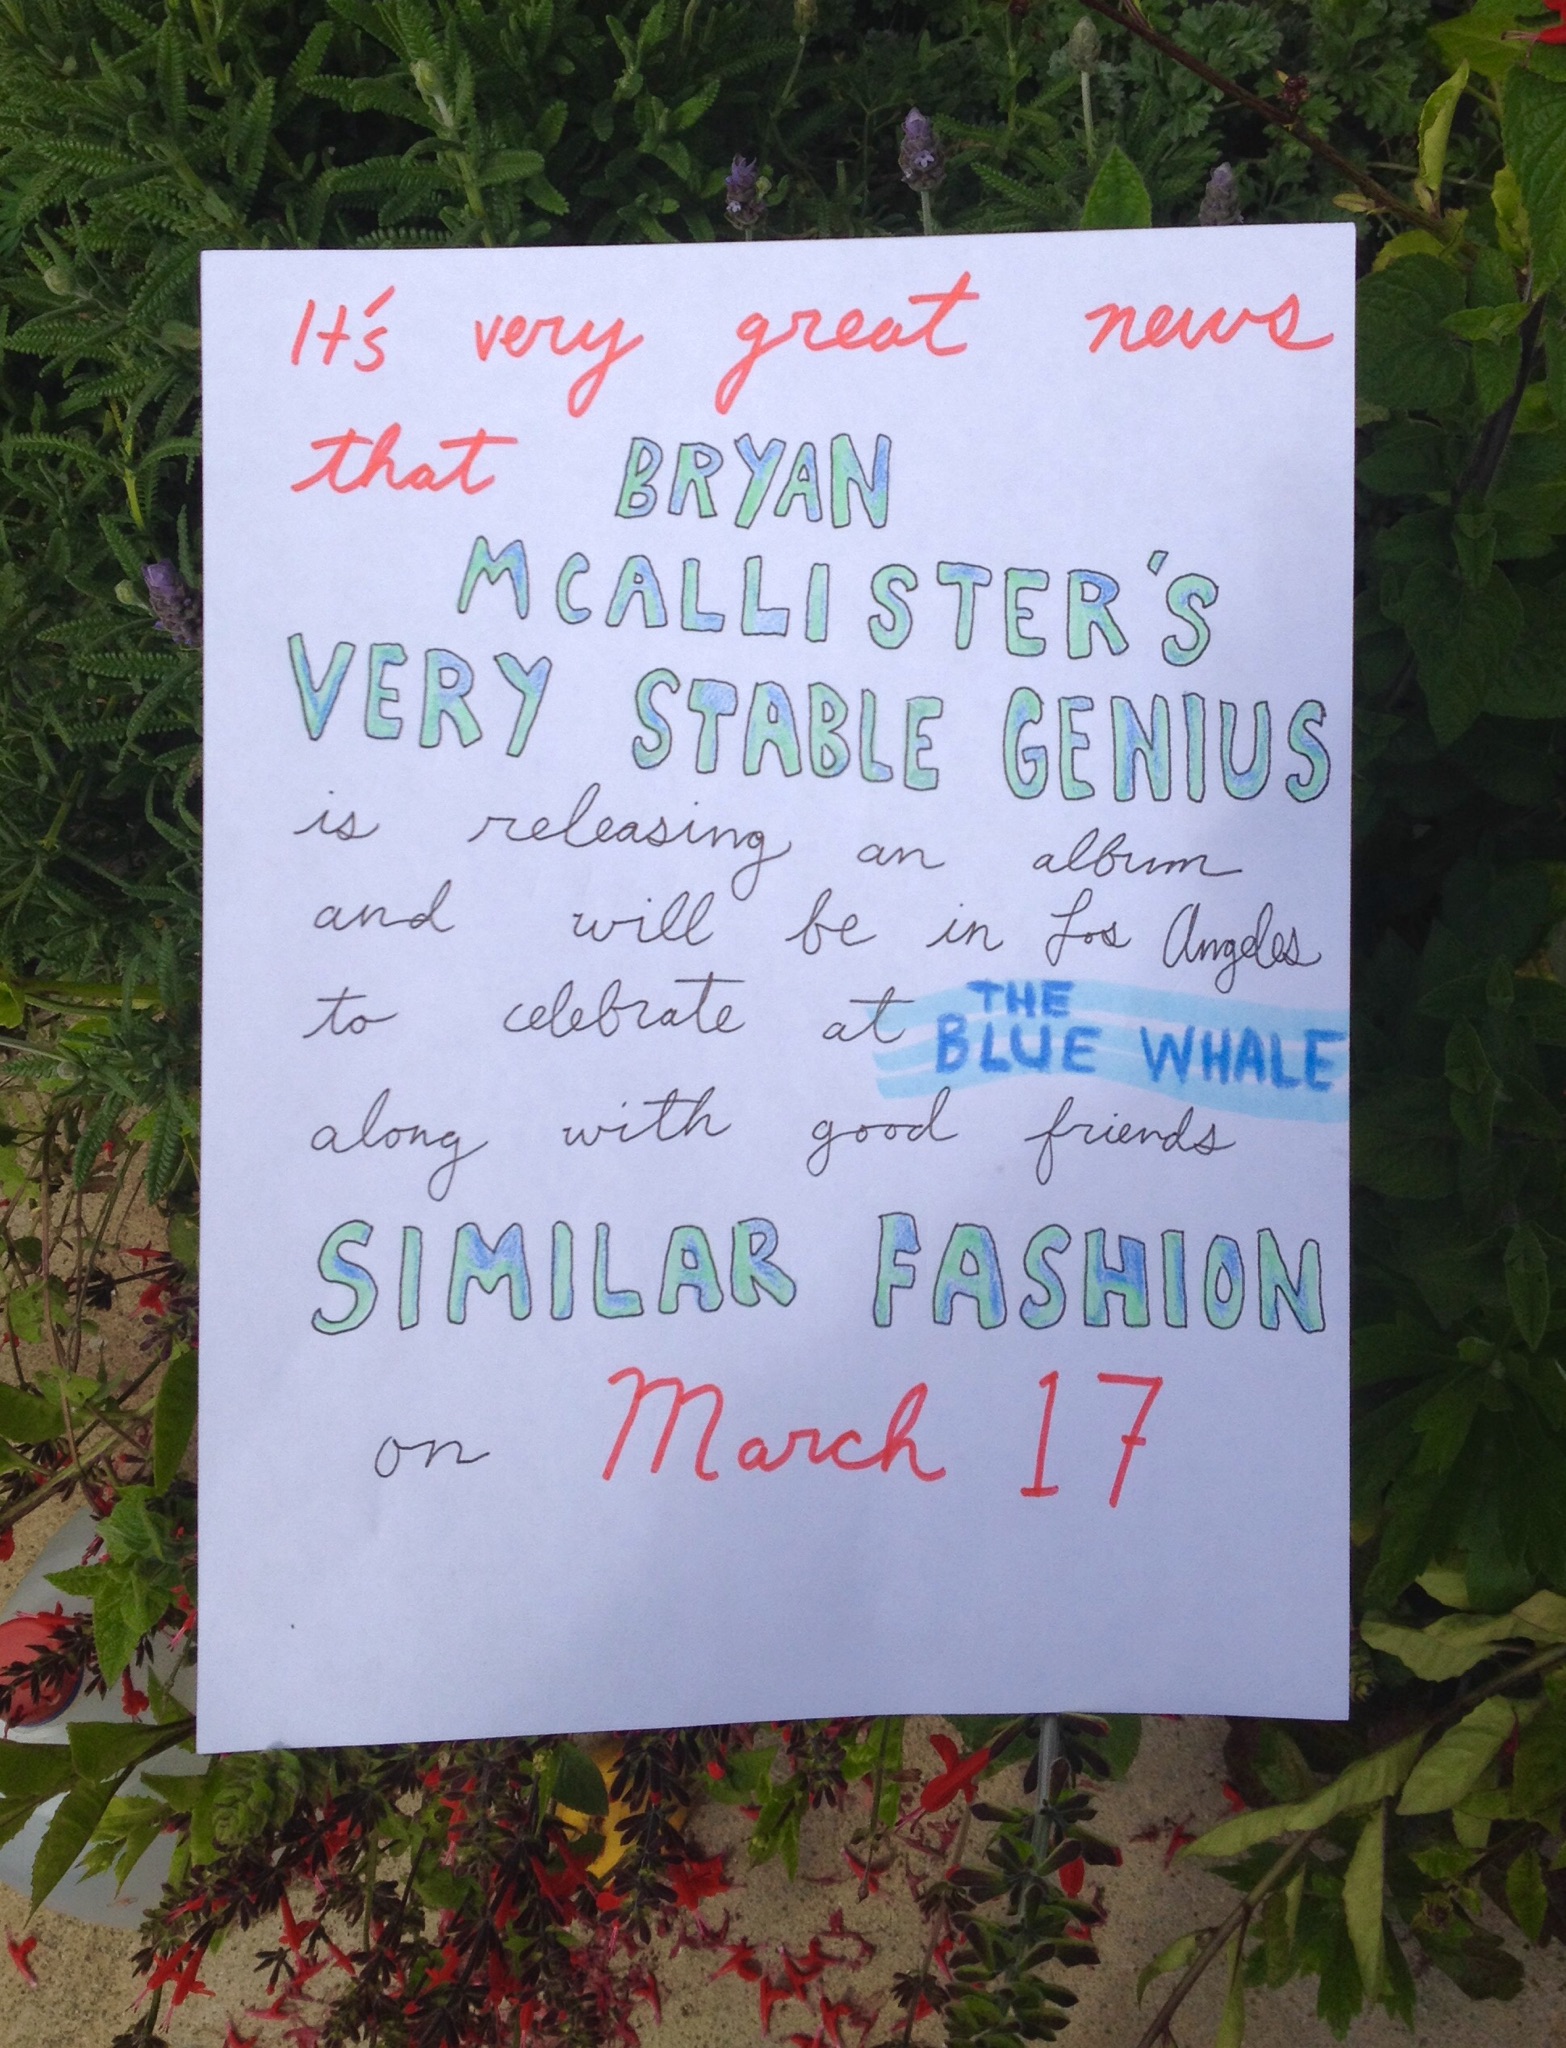 It's very great news
that BRYAN
MCALLISTER'S
VERY STABLE GENIUS
is releasing an album
and will be in Los Angeles
to celebrate at THE BLUE WHALE
along with good friends
SIMILAR FASHION
on March 17